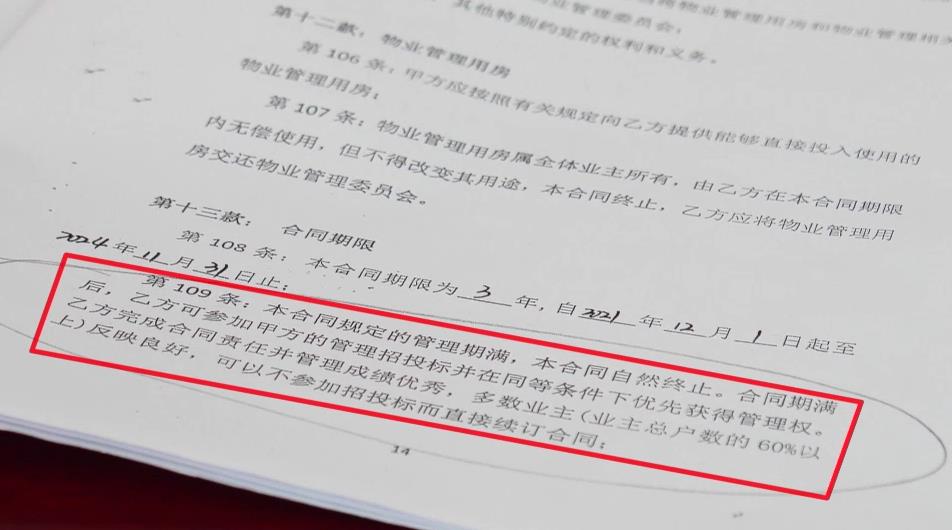 将物业管理用房和物业管理相
业管理委员会,
其他特别约定的权利和义务。
第十二款:物业管理用房
第 106 条:甲方应按照有关规定向乙方提供能够直接投入使用的
物业管理用房;
第 107 条:物业管理用房属全体业主所有,由乙方在本合同期限
内无偿使用,但不得改变其用途,本合同终止,乙方应将物业管理用
房交还物业管理委员会。
第十三款:合同期限
第 108 条:本合同期限为 3 年,自 2021 年 12 月 1 日起至
2024 年 11 月 31 日止;
第 109 条:本合同规定的管理期满,本合同自然终止。合同期满
后,乙方可参加甲方的管理招投标并在同等条件下优先获得管理权。
乙方完成合同责任并管理成绩优秀,多数业主(业主总户数的 60%以
上)反映良好,可以不参加招投标而直接续订合同;
14